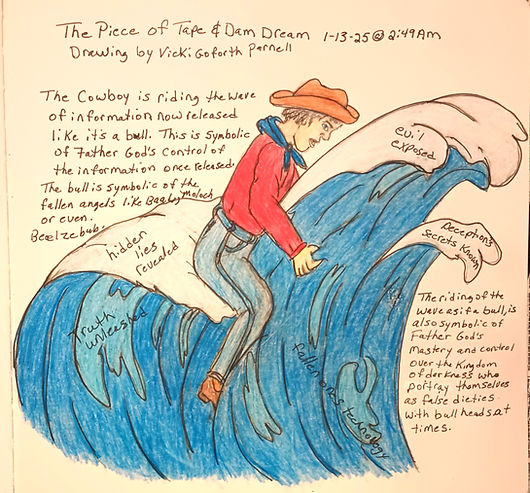 The Piece of Tape & Dam Dream 1-13-25 @ 2:49 AM
Drawing by Vicki Goforth Parnell
The Cowboy is riding the wave
of information now released
like it's a bull. This is symbolic
of Father God's control of
the information once released.
The bull is symbolic of the
fallen angels like Baal, Moloch
or even.
Beelzebub.
evil
exposed
Deceptions
Secrets Known
hidden
lies
revealed
Truth
unleashed
fallen ones technology
The riding of the
wave as if a bull, is
also symbolic of
Father God's
Mastery and control
over the Kingdom
of darkness who
portray themselves
as false dieties
with bull heads at
times.